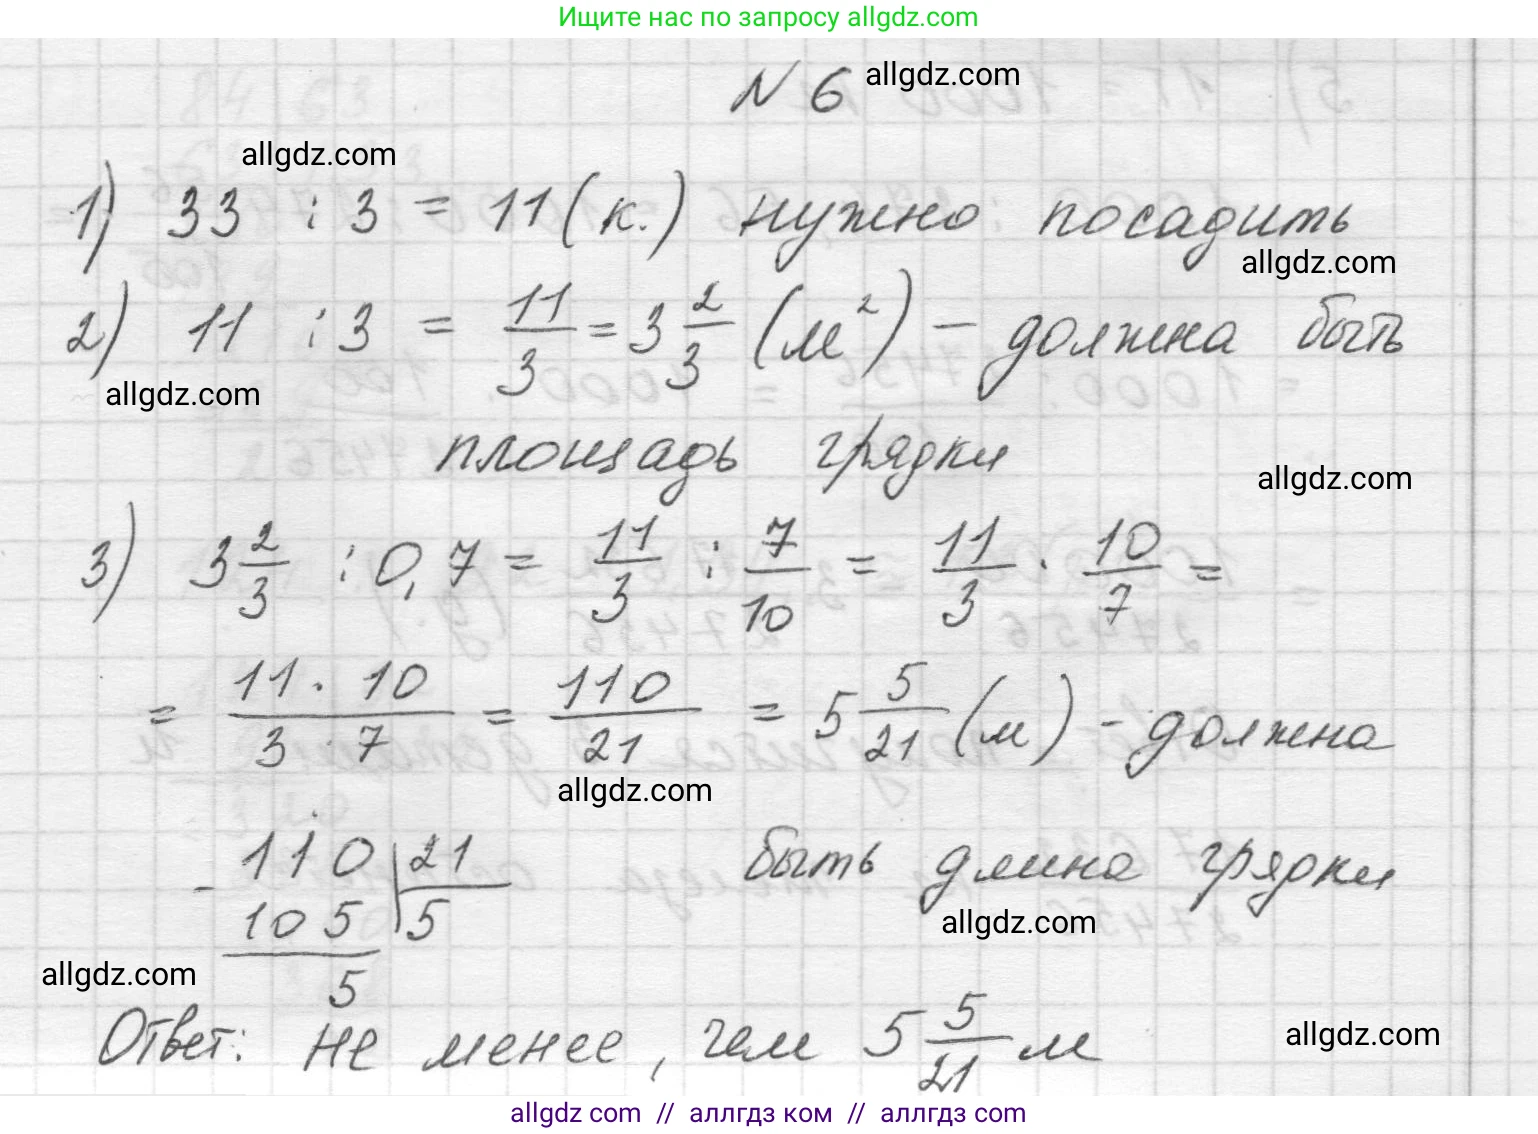 Ищите нас по запросу allgdz.com
N 6 allgdz.com
allgdz.com
1) 33 : 3 = 11 (к.) нужно посадить
allgdz.com
2) 11 : 3 = 11/3 = 3 2/3 (м²) – должна быть
allgdz.com
площадь грядки
allgdz.com
3) 3 2/3 : 0,7 = 11/3 : 7/10 = 11/3 · 10/7 =
= 11 · 10/3 · 7 = 110/21 = 5 5/21 (м) – должна
allgdz.com
110 21 быть длина грядки
- 105 5
allgdz.com
allgdz.com
5
Ответ: не менее, чем 5 5/21 м
allgdz.com
allgdz com // аллгдз ком // аллгдз com